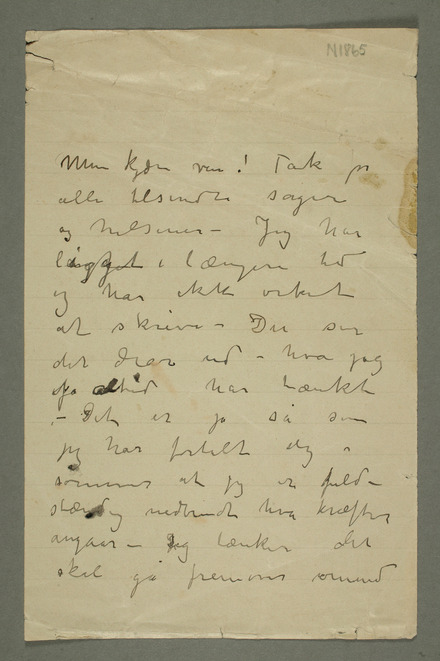 N1865
Min kjære ven! Tak for
alle tilsendte sager
og hilsener – Jeg har
ligget i længere tid
og har ikke orket
at skrive – Du ser
det drar ud – hva jeg
altid har tænkt
– Det er jo så som
jeg har fortalt dig
sommer at jeg er fuld-
stændig nedbrudt hva kræfter
angaar – Jeg tænker det
skal gå fremover